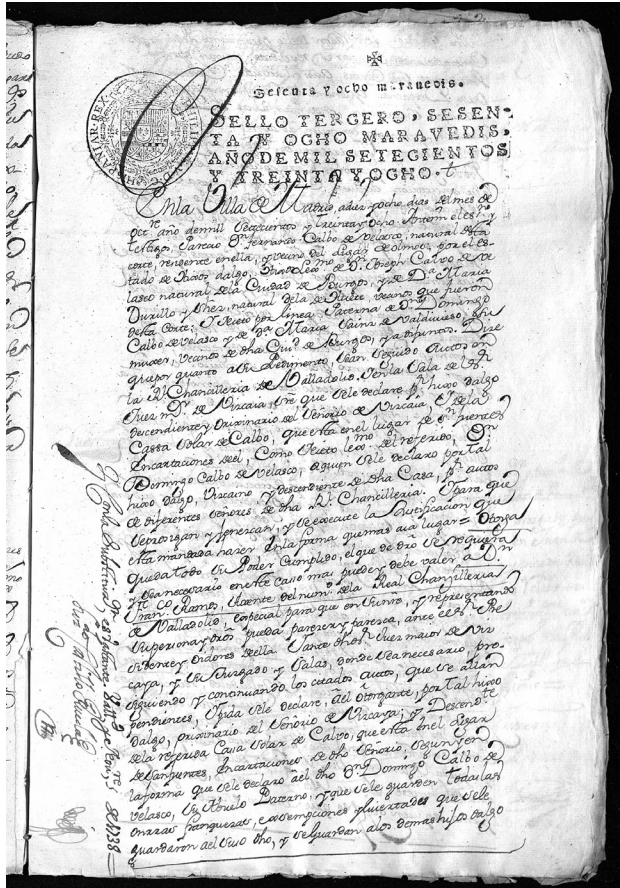 Sesenta y ocho maravedis.
SELLO TERCERO, SESEN-
TA Y OCHO MARAVEDIS,
AÑO DE MIL SETECIENTOS
Y TREINTA Y OCHO.
HISPANIAR REX
En la Villa de Madrid, a diez y ocho dias del mes de
octre año de mill Setecientos y treinta y ocho. Antemi el essno y
testigos, Parecio Dn Fernando Calbo de Velasco, natural desta
corte, residente en ella, y vecino del lugar de olmos, por el es-
tado de hixos dalgo, hixo lexmo de Dn Joseph Calvo de Ve-
lasco natural de la Ciudad de Burgos, y de Da Maria
natural de la de vecinos que fueron
desta Corte: Y Nieto por linea Paterna de Dn Domingo
Calbo de Velasco y de Da Maria Sainz de Valdivieso, su
muxer, vecinos de dha Ciud de Burgos, ya difuntos. Dixe
que por quanto a su Pedimento, se an Seguido Auttos en
la Rl Chancilleria de Valladolid, en la Sala de el Sr
Juez mor de Vizcaia, sre que se le declare pr hixo dalgo
descendiente y orixinario del Señorio de Vizcaia, y de la
Cassa Solar de Calbo, que esta en el lugar de Sn fuentes
Encartaciones de el, Como Nieto lexmo del referido, Dn
Domingo Calbo de Velasco, a quien se le declaro por tal
hixo dalgo, Vizcaino y descendiente de dha Casa, pr auttos
de diferentes señores de dha Rl Chancilleria. Y para que
se prosigan y fenezcan, y se execute la Justificacion que
esta mandada hazer. En la forma que mas aia lugar = Otorga
que da todo su Poder Cumplido, el que de dro se requiera
y sea necesario en este caso mas puede y debe valer, a Dn
Franco Ramos, Axente del numo de la Real Chanzilleria
de Valladolid, especial para que en su nre, y representando
su persona y dros pueda parezer y paresca, ante el Sr Pre
sidente y oidores della, y ante dho Sr Juez maior de Viz
caya, y su Juzgado y Salas, donde sea necesario, pro-
siguiendo y continuando los citados autos, que se allan
pendientes, y pida se le declare, a el otorgante, por tal hixo
dalgo, orixinario del Señorio de Vizcaya; y Descendte
de la referida Casa Solar de Calvo, que esta en el Lugar
de Sanfuentes, Encartaciones de dho Señorio, Segun y en
la forma que se declaro a el dho Dn Domingo Calbo de
Velasco, su Abuelo Paterno, y que se le guarden todas las
onrras franquezas, exempciones y livertades que se le
guardaron a el Suso dho, y se guardan a los demas hijos dalgo
1738